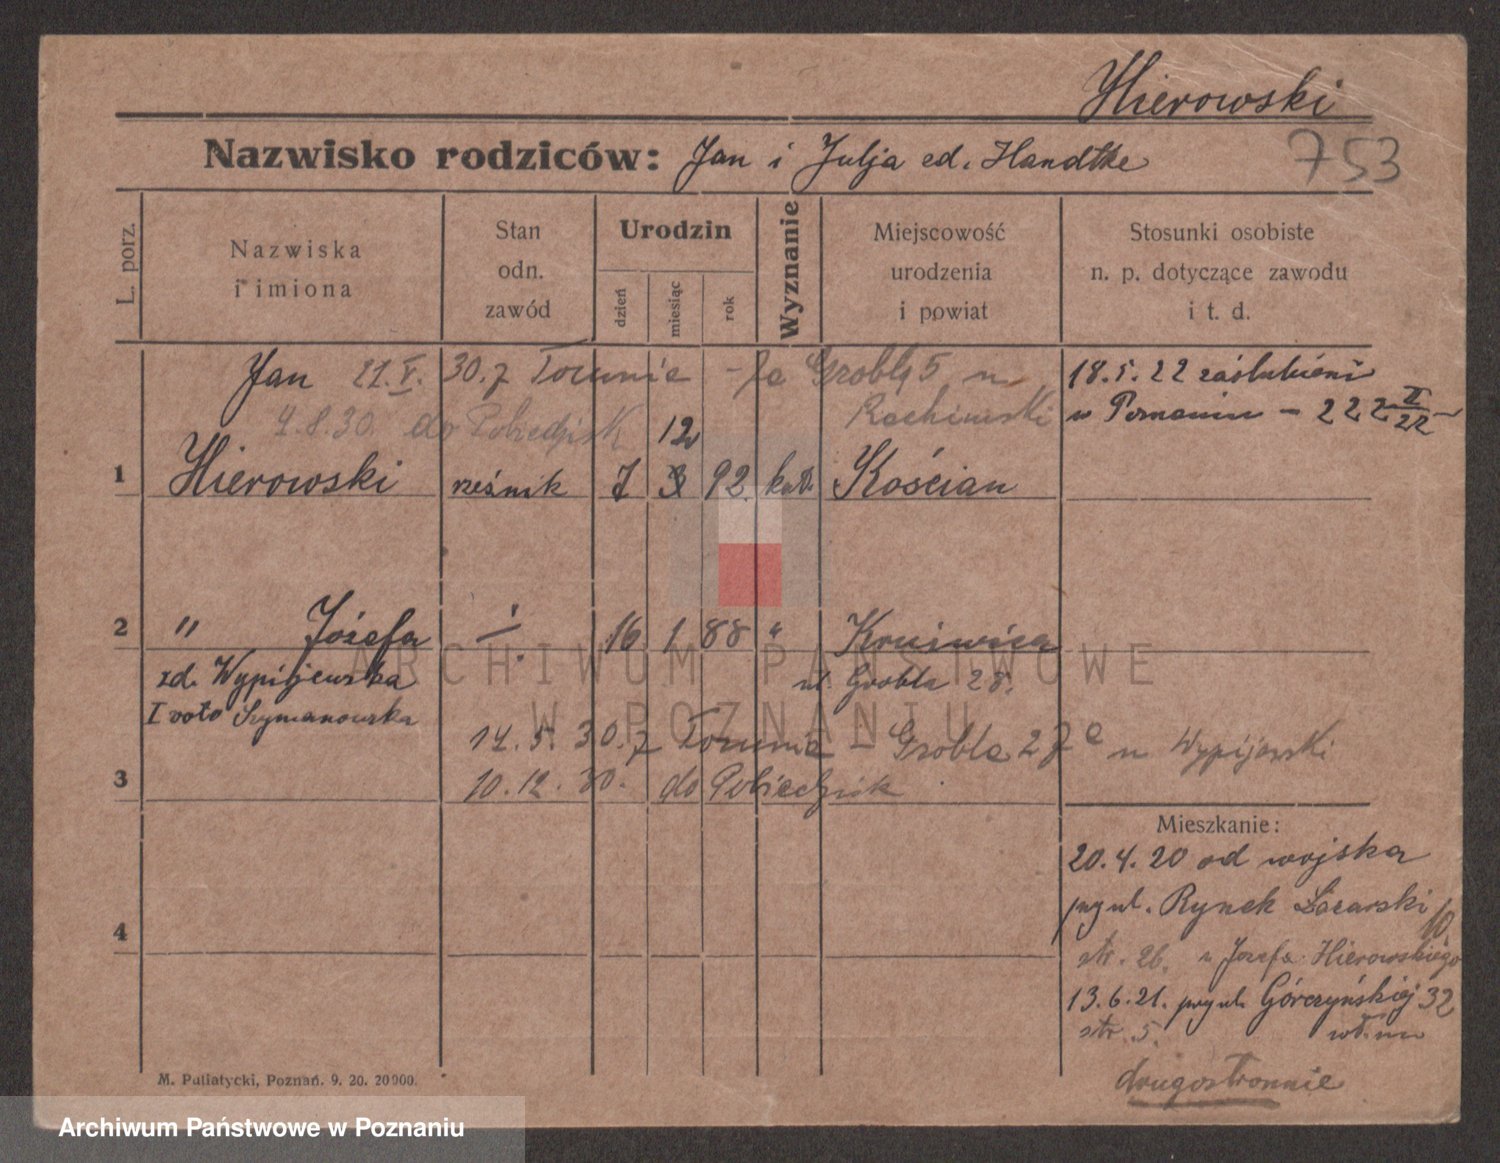 Hierowski
753
Nazwisko rodziców: Jan i Julja zd. Handtke
L. porz.
Nazwiska i imiona
Stan odn. zawód
Urodzin
dzień
miesiąc
rok
Wyznanie
Miejscowość urodzenia i powiat
Stosunki osobiste n. p. dotyczące zawodu i t. d.
Jan 21. V. 30. z Torunia - Grobla 5
18.5.22 zaślubieni
4.8.30. do Pobiedzisk
w Poznaniu - 222
12
1 Hierowski rzeźnik 7 3 92 kat. Kościan
2 " Józefa 16 1 88 " Kruświca
zd. Wypijewska
ul. Grobla 28.
I voto Szymanowska
14.5.30. z Torunia - Grobla 27a u Wypijewski
3 10.12.30. do Pobiedzisk
Mieszkanie:
20.4.20 od wojska
przy ul. Rynek Łazarski 10
4
str. 26. u Józefa Hierowskiego
13.6.21. przy ul. Górczyńskiej 32
str. 5.
drugostronnie
M. Putiatycki, Poznań. 9. 20. 20000.
ARCHIWUM PAŃSTWOWE
W POZNANIU
Archiwum Państwowe w Poznaniu